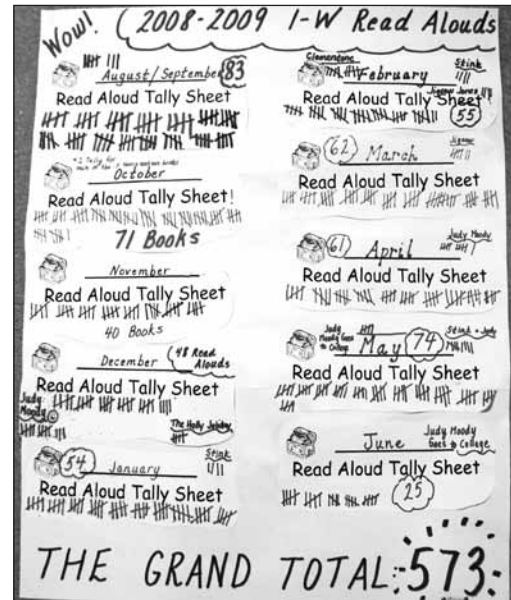 Wow!
2008-2009 1-W Read Alouds
August/September 83
Read Aloud Tally Sheet
October
Read Aloud Tally Sheet!
71 Books
November
Read Aloud Tally Sheet
40 Books
December
48 Read Alouds
Read Aloud Tally Sheet
Judy Moody
The Holly
54 January
Stink
Read Aloud Tally Sheet
Clementine
February
Stink
Read Aloud Tally Sheet
55
62 March
Read Aloud Tally Sheet
61 April
Judy Moody
Read Aloud Tally Sheet
Judy Moody Goes to College
May 74
Stink + Judy
Read Aloud Tally Sheet
June
Judy Moody
Goes to College
Read Aloud Tally Sheet
25
THE GRAND TOTAL: 573